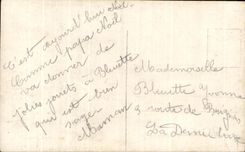 C'est aujourd'hui Noël
Comme papa Noël
va donner de
jolies jouets à Bluette
qui est bien
sage
Maman
Mademoiselle
Bluette Yvonne
route de
La Demi-Lune